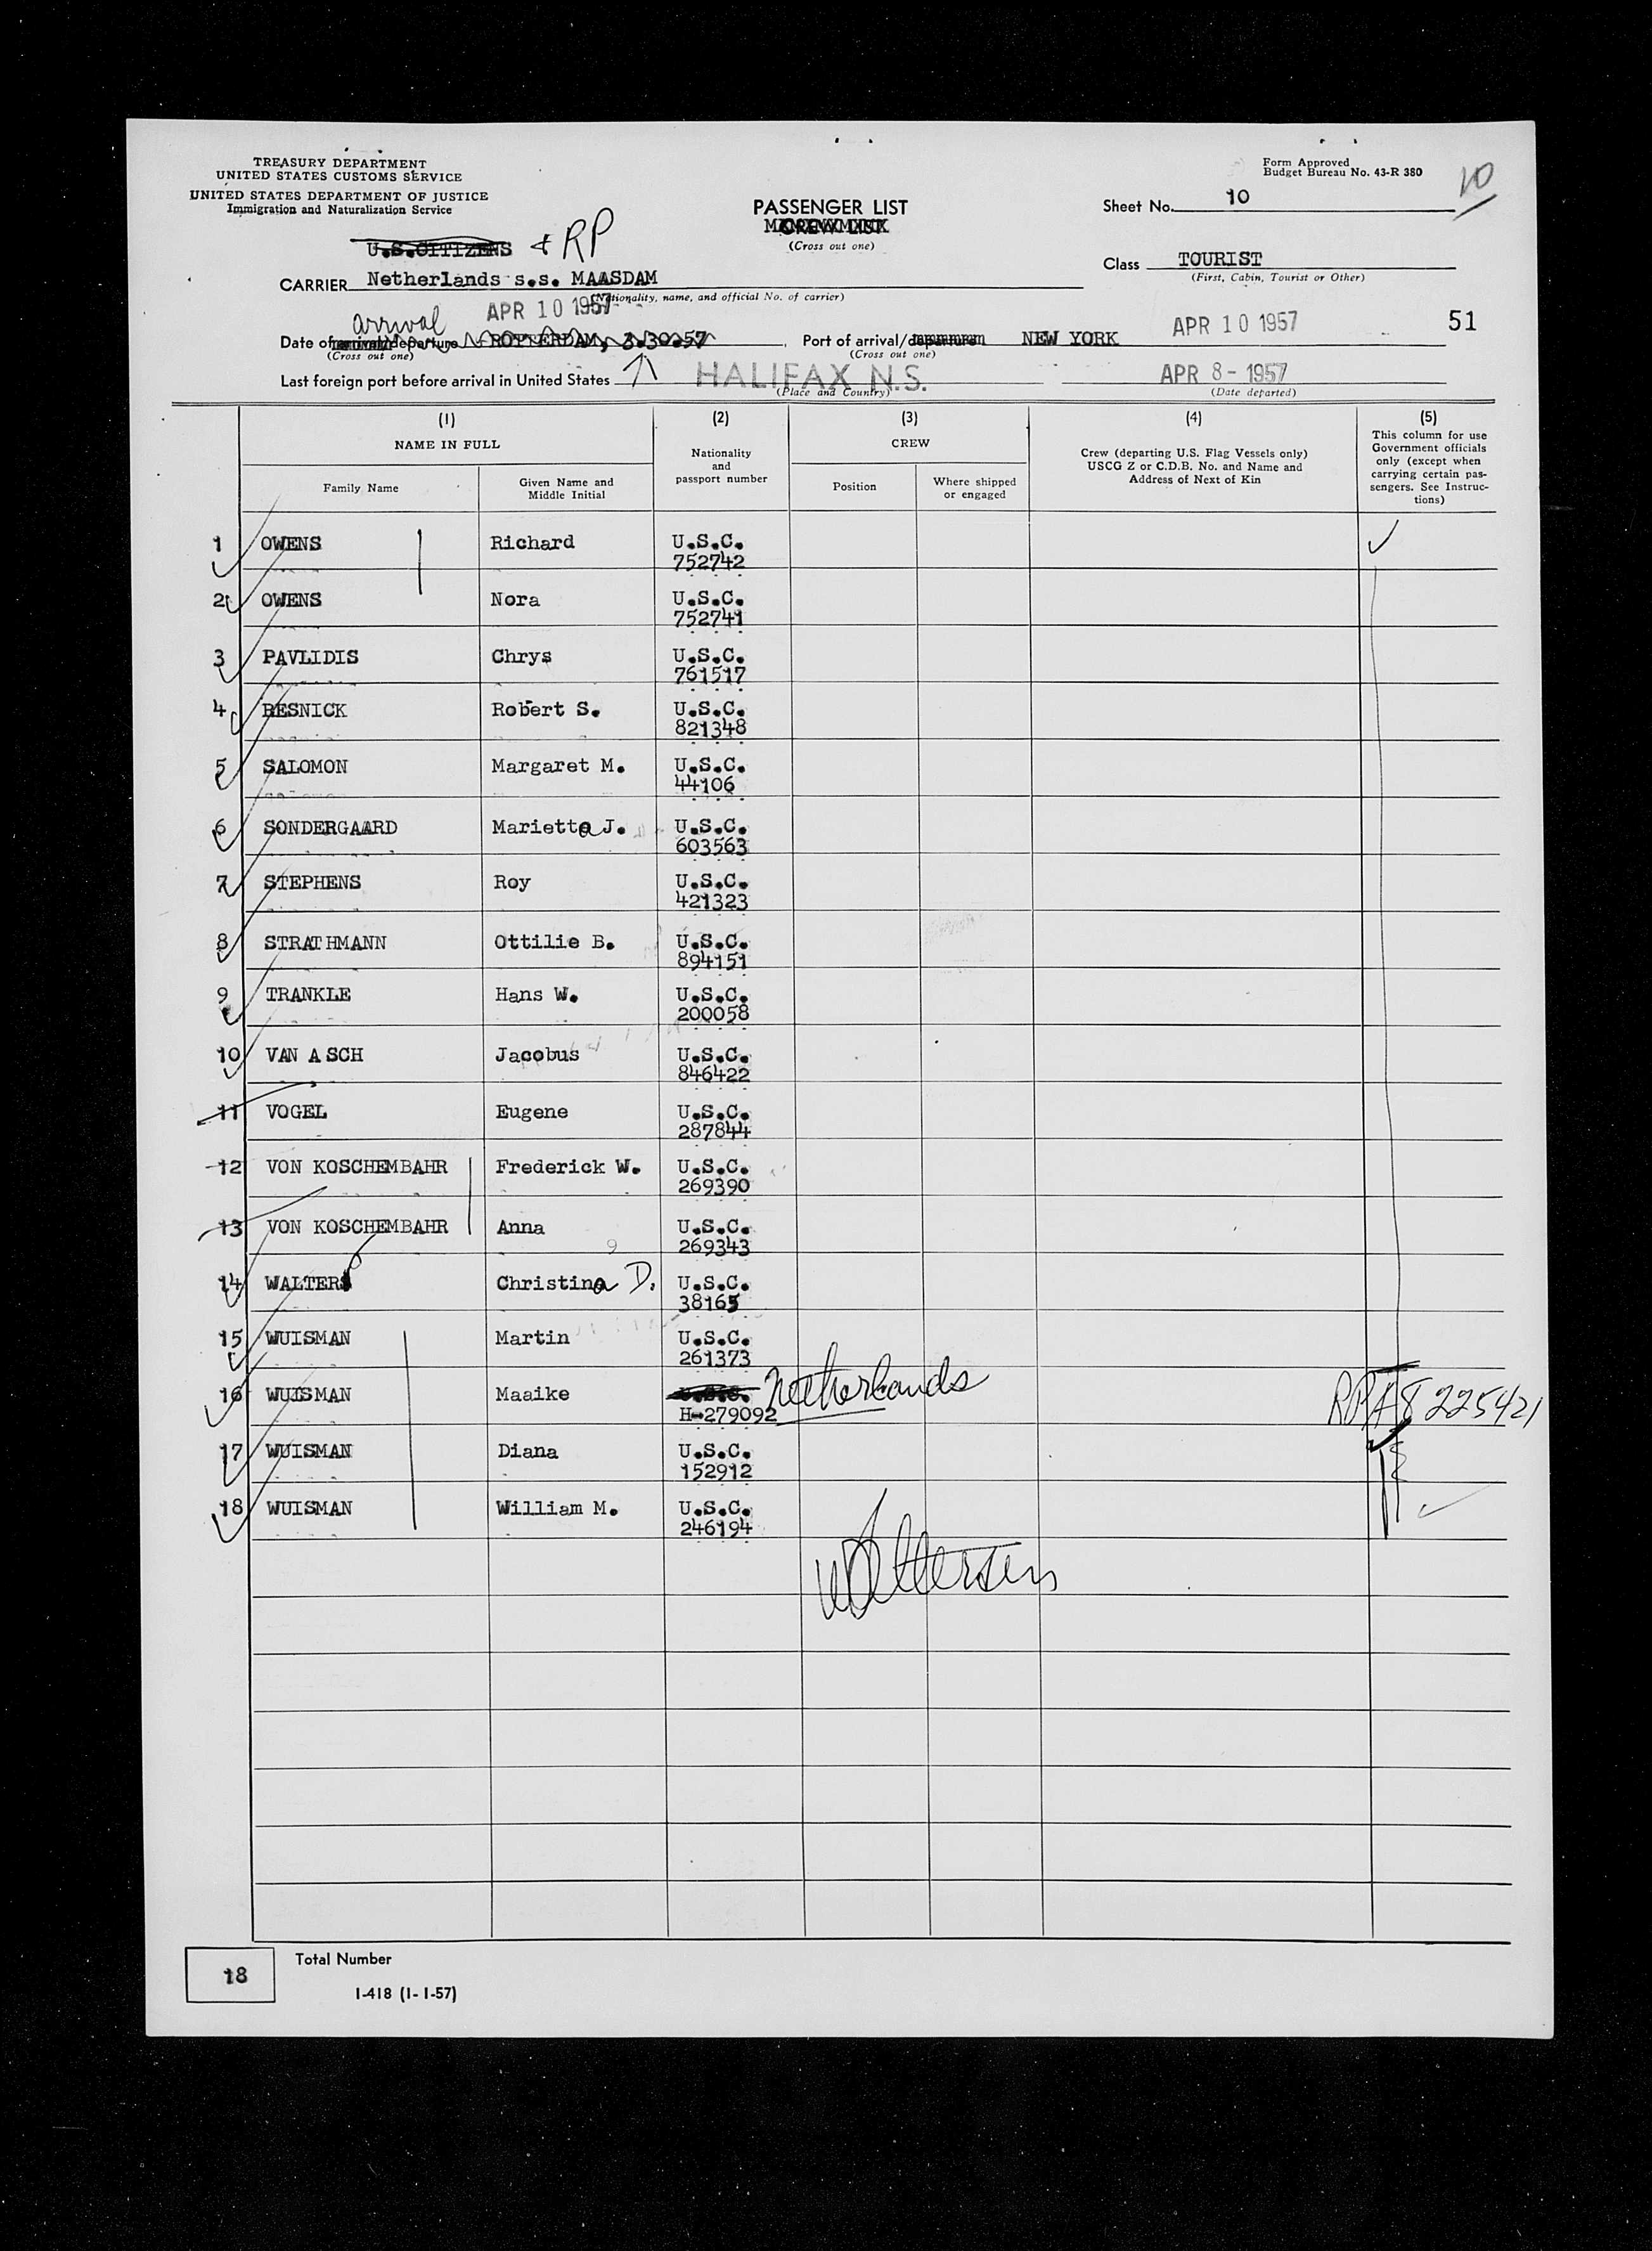 TREASURY DEPARTMENT
UNITED STATES CUSTOMS SERVICE
UNITED STATES DEPARTMENT OF JUSTICE
Immigration and Naturalization Service
Form Approved
Budget Bureau No. 43-R 380
10
PASSENGER LIST
CREW LIST
(Cross out one)
Sheet No. 10
U.S.CITIZENS & RP
Class TOURIST
(First, Cabin, Tourist or Other)
CARRIER Netherlands s.s. MAASDAM
(Nationality, name, and official No. of carrier)
APR 10 1957
arrival
Date of departure ROTTERDAM, 3.30.57
(Cross out one)
Port of arrival/departure NEW YORK APR 10 1957
(Cross out one)
51
Last foreign port before arrival in United States HALIFAX N.S. APR 8 - 1957
(Place and Country) (Date departed)
(1) (2) (3) (4) (5)
NAME IN FULL
Family Name
Given Name and
Middle Initial
Nationality
and
passport number
CREW
Position
Where shipped
or engaged
Crew (departing U.S. Flag Vessels only)
USCG Z or C.D.B. No. and Name and
Address of Next of Kin
This column for use
Government officials
only (except when
carrying certain pas-
sengers. See Instruc-
tions)
1 OWENS Richard U.S.C.
752742
2 OWENS Nora U.S.C.
752741
3 PAVLIDIS Chrys U.S.C.
761517
4 RESNICK Robert S. U.S.C.
821348
5 SALOMON Margaret M. U.S.C.
44106
6 SONDERGAARD Marietta J. U.S.C.
603563
7 STEPHENS Roy U.S.C.
421323
8 STRATHMANN Ottilie B. U.S.C.
894151
9 TRANKLE Hans W. U.S.C.
200058
10 VAN ASCH Jacobus U.S.C.
846422
11 VOGEL Eugene U.S.C.
287844
12 VON KOSCHEMBAHR Frederick W. U.S.C.
269390
13 VON KOSCHEMBAHR Anna U.S.C.
269343
9
14 WALTERS Christina D. U.S.C.
38165
15 WUISMAN Martin U.S.C.
261373
16 WUISMAN Maaike U.S.C. Netherlands
H-279092
RP A8 225421
17 WUISMAN Diana U.S.C.
152912
18 WUISMAN William M. U.S.C.
246194
18
Total Number
I-418 (1-1-57)